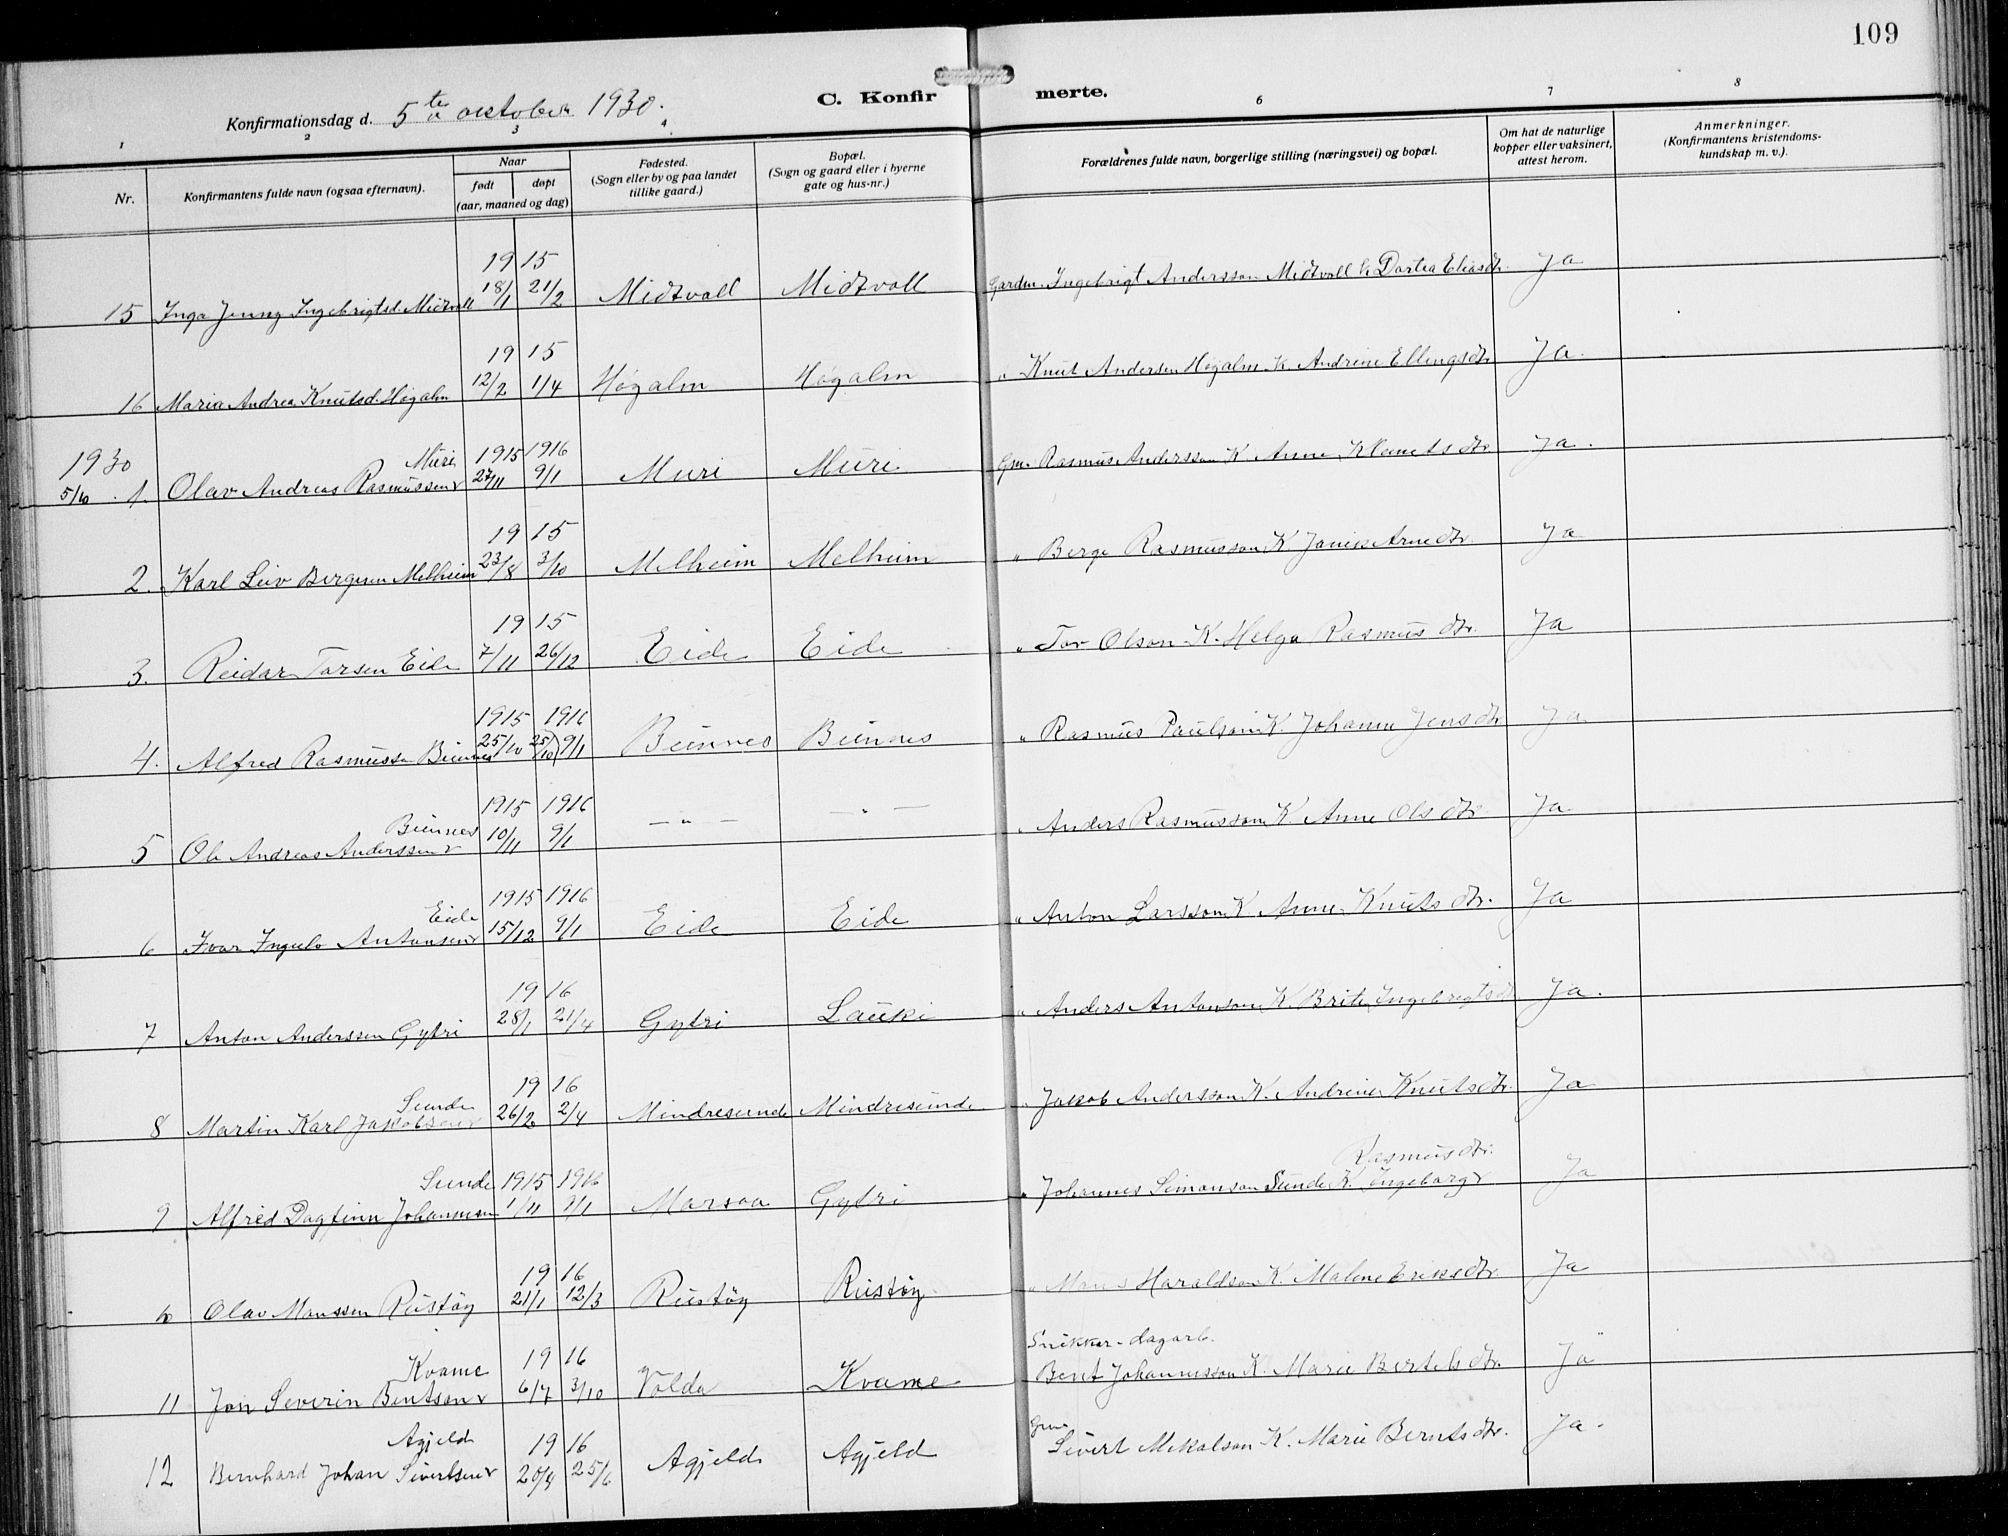 109
C. Konfirmerte.
Konfirmationsdag d. 5te oktober 1930.
1 2 3 4 6 7 8
Nr.
Konfirmantens fulde navn (ogsaa efternavn).
Naar
født døpt
(aar, maaned og dag)
Fødested.
(Sogn eller by og paa landet
tillike gaard.)
Bopæl.
(Sogn og gaard eller i byerne
gate og hus-nr.)
Forældrenes fulde navn, borgerlige stilling (næringsvei) og bopæl.
Om hat de naturlige
kopper eller vaksinert,
attest herom.
Anmerkninger.
(Konfirmantens kristendoms-
kundskap m. v.).
19 15
15 Inga Jenny Ingebrigtsd. Midtvoll 18/1 21/2 Midtvoll Midtvoll Gardm. Ingebrigt Andersson Midtvoll k. Dortea Eliasdtr. Ja
19 15
16 Maria Andrea Knutsd. Høgalm 12/2 1/4 Høgalm Høgalm " Knut Andersen Høgalm K. Andrine Ellingsdtr. Ja.
1930 Muri 1915 1916
5/10 1. Olav Andreas Rasmussen 27/11 9/1 Muri Muri Gm. Rasmus Andersson K. Anne Klametsdtr. Ja.
19 15
2. Karl Leiv Bergesen Melheim 23/8 3/10 Melheim Melheim " Berge Rasmusson K. Arnedtr. Ja
19 15
3. Reidar Torsen Eide 7/11 26/12 Eide Eide " Tor Olson K. Helga Rasmusdtr. Ja
1915 1916
4. Alfred Rasmussen Bunnes 25/10 25/10) 9/1 Bunnes Bunnes " Rasmus Paulson K. Johanne Jensdtr. Ja
Bunnes 1915 1916
5 Ole Andreas Anderssen 10/11 9/1 — " — — " — " Anders Rasmusson K. Anne Olsdtr. Ja
Eide 1915 1916
6 Ivar Ingulv Antonsen 15/12 9/1 Eide Eide " Anton Larsson K. Anne Knutsdtr. Ja
19 16
7 Anton Anderssen Gytri 28/1 21/4 Gytri Lauki " Anders Antonson K. Brite Ingebrigtsdtr. Ja.
Sunde 19 16
8 Martin Karl Jakobsen 26/2 2/4 Mindresunde Mindresunde " Jakob Andersson K. Andrine Knutsdtr. Ja
Sunde 1915 1916 Rasmusdtr.
9 Alfred Dagfinn Johannesen 1/11 9/1 Marsaa Gytri " Johannes Simonson Sunde K. Ingeborg Ja
19 16
Olav Monssen Rustøy 21/1 12/3 Rustøy Rustøy " Mons Haraldson K. Malene Eriksdtr. Ja
Kvame 19 16 Snikker-dagarb.
11 Jon Severin Bentsen 6/7 3/10 Volda Kvame Bent Johannesson K. Marie Bertelsdtr. Ja
Agjeld 19 16 Gm.
12 Bernhard Johan Sivertsen 20/4 25/6 Agjeld Agjeld Sivert Mekalson K. Marie Berntsdtr. Ja.